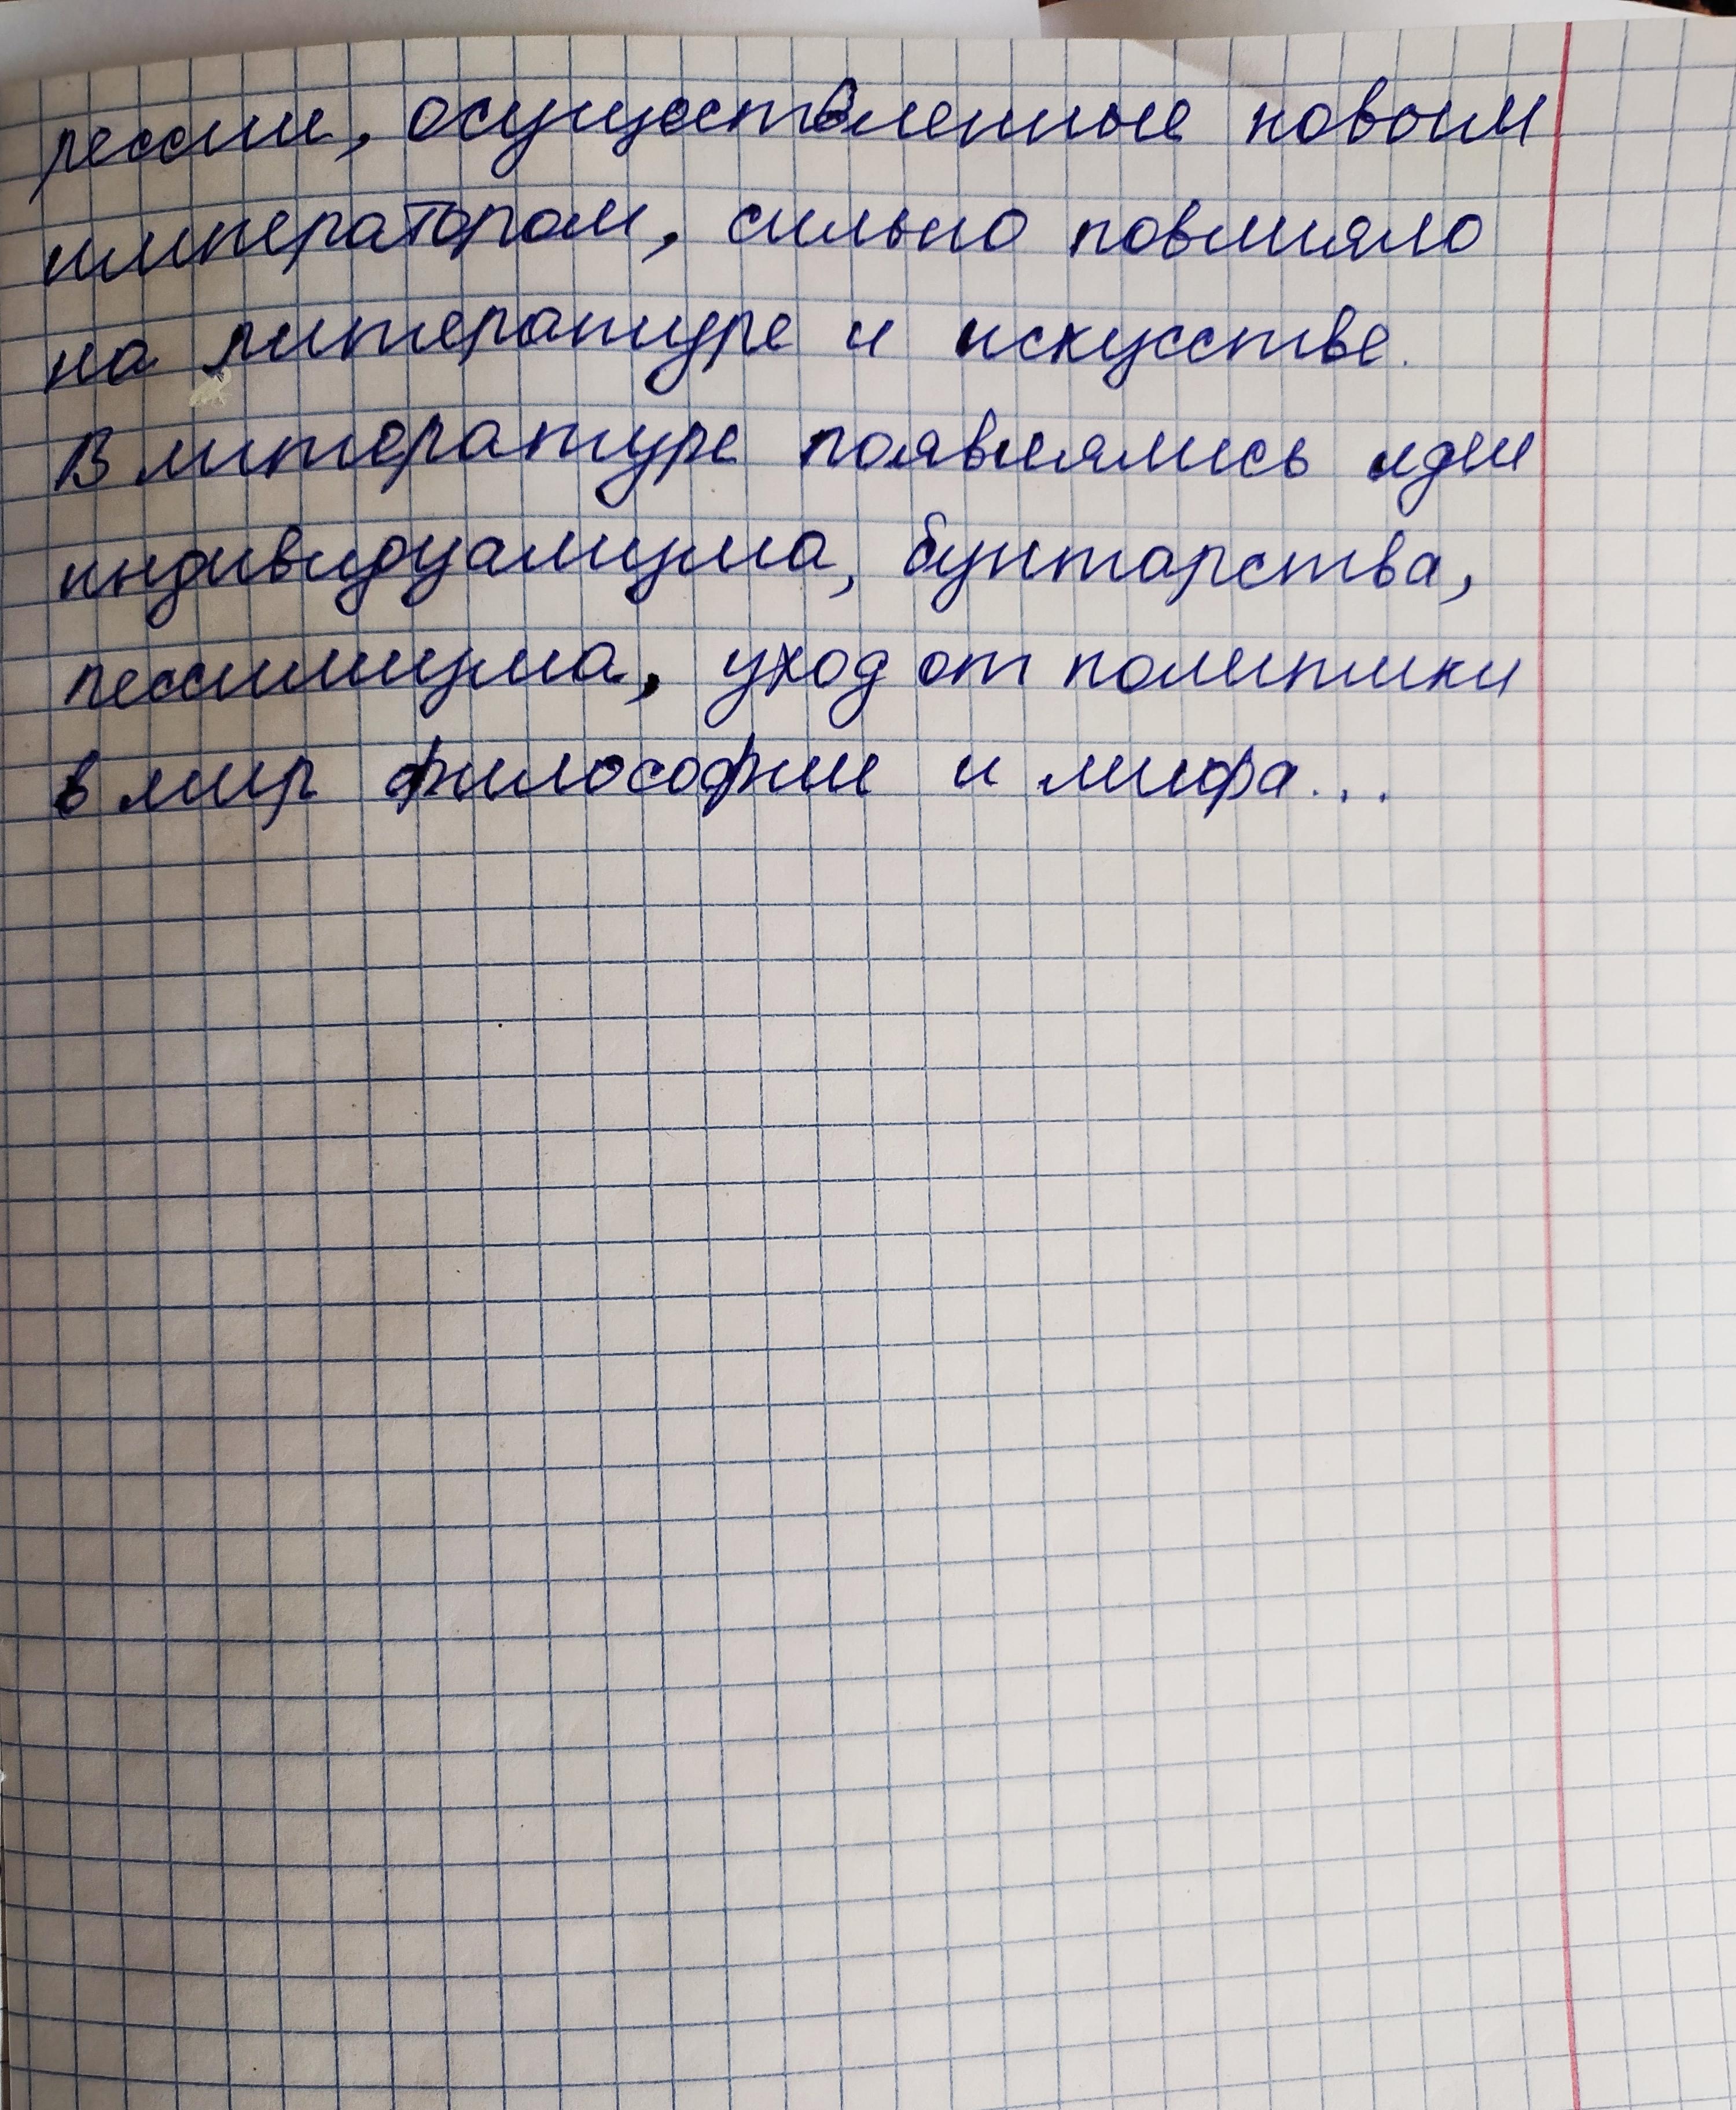 рессии, осуществленные новым
императором, сильно повлияло
на литературе и искусстве.
В литературе появлялись идеи
индивидуализма, бунтарства,
пессимизма, уход от политики
в мир философии и мифа...